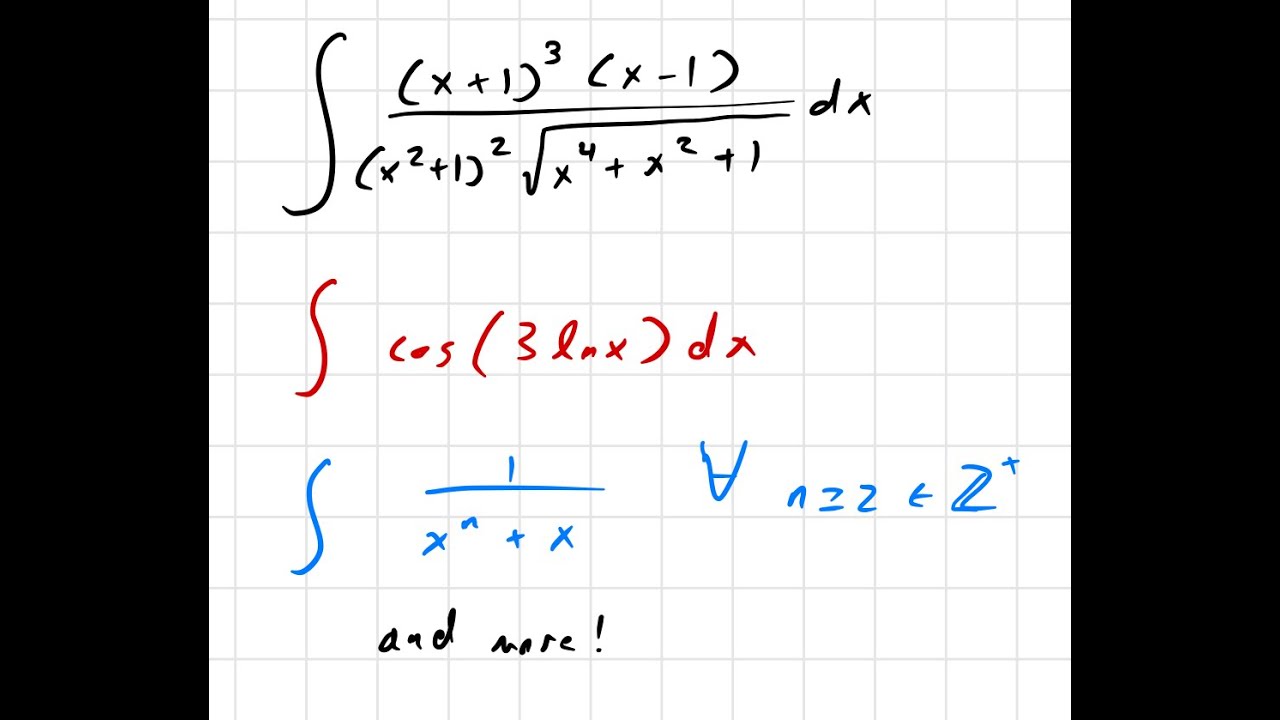 ∫ (x+1)³ (x-1) / (x²+1)² √(x⁴ + x² + 1) dx
∫ cos(3 ln x) dx
∫ 1 / (xⁿ + x) ∀ n ≥ 2 ∈ ℤ⁺
and more!